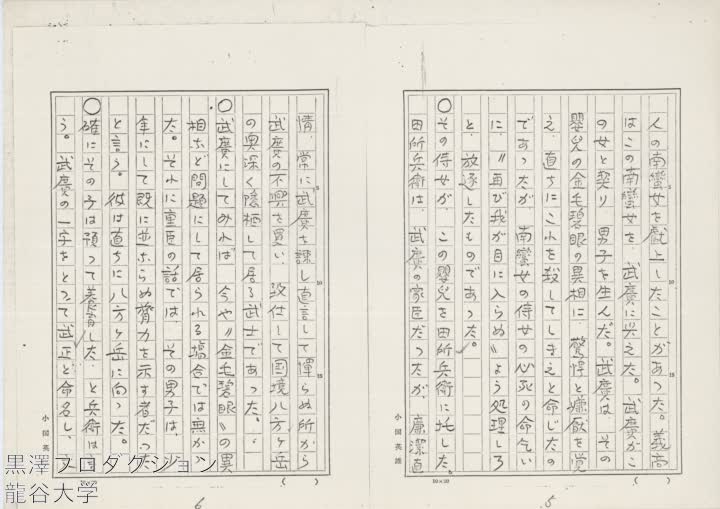 人の南蛮女を献上したことがあった。義高
はこの南蛮女を、武廣に与えた。武廣がこ
の女と契り、男子を生んだ。武廣は、その
嬰児の金毛碧眼の異相に、驚愕と嫌厭を覚
え、直ちにこれを殺してしまえと命じたの
であったが、南蛮女の侍女の必死の命乞い
に、《再び我が目に入らぬ》よう処理しろ
と、放逐したものであった。
○その侍女が、この嬰児を田所兵衛に托した。
田所兵衛は、武廣の家臣だったが、廉潔直
小国英雄
10×10
5
情、常に武廣を諫し直言して憚らぬ所から
武廣の不興を買い、致仕して国境八方ヶ岳
の奥深く隠栖して居る武士であった。
○武廣にしてみれば、今や《金毛碧眼》の異
相など問題にして居られる場合では無かっ
た。それに重臣の話では、その男子は、少
年にして既に並ならぬ膂力を示す者だった
と言う。彼は直ちに八方ヶ岳に向った。
○確にその子は預って養育した、と兵衛は言
う。武廣の一字をとって武正と命名し、
小国英雄
6
黒澤プロダクション
龍谷大学